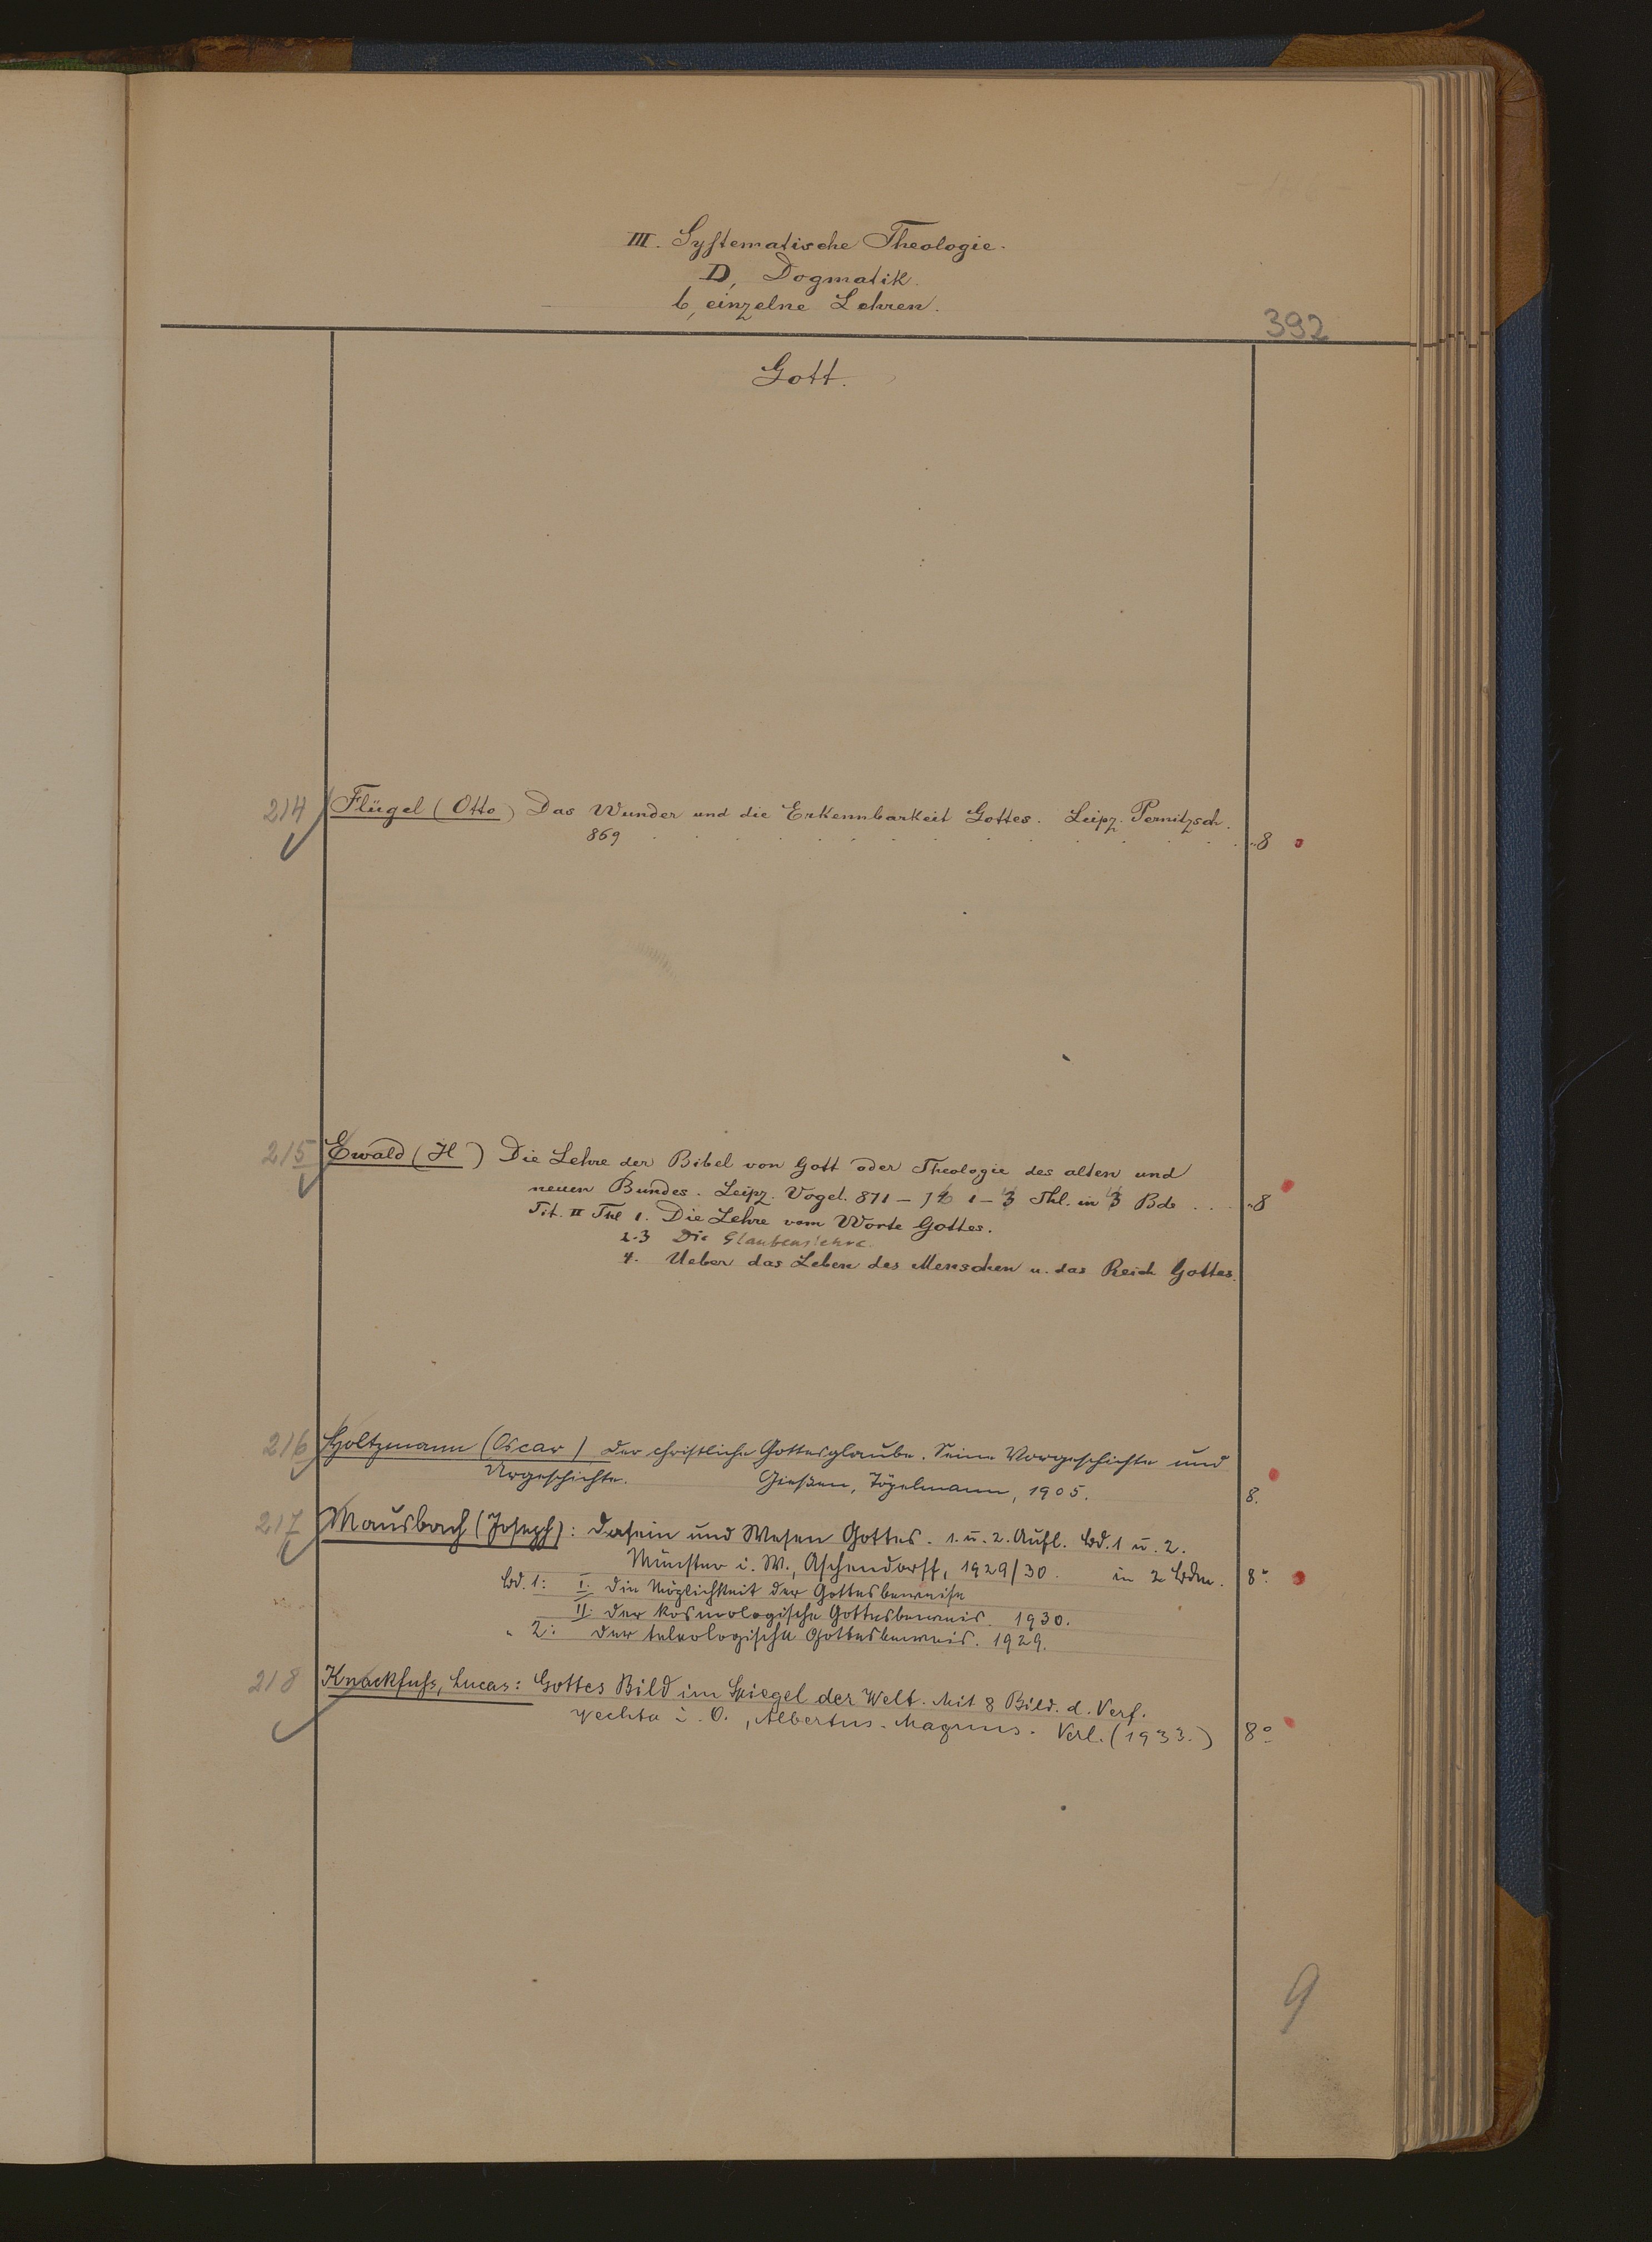 III. Systematische Theologie.
D, Dogmatik.
b, einzelne Lehren.
392
Gott.
214 Flügel (Otto) Das Wunder und die Erkennbarkeit Gottes. Leipz. Pernitzsch.
869 . . . . . . . . . . . . . 8
215 Ewald (H) Die Lehre der Bibel von Gott oder Theologie des alten und
neuen Bundes. Leipz. Vogel. 871 – 76 1 – 4 Thl. in 4 Bde . . . 8
Tit. II Thl 1. Die Lehre vom Worte Gottes.
2-3 Die Glaubenslehre.
4. Ueber das Leben des Menschen u. das Reich Gottes.
216 Holtzmann (Oscar) Der christliche Gottesglaube. Seine Vorgeschichte und
Urgeschichte. Gießen, Töpelmann, 1905. 8.
217 Mausbach (Joseph): Dasein und Wesen Gottes. 1. u. 2. Aufl. Bd. 1 u. 2.
Münster i. W., Aschendorff, 1929/30. in 2 Bdn. 8°
Bd. 1: I. Die Möglichkeit der Gottesbeweise
II: Der kosmologische Gottesbeweis. 1930.
" 2: Der teleologische Gottesbeweis. 1929.
218 Knackfuss, Lucas: Gottes Bild im Spiegel der Welt. Mit 8 Bild. d. Verf.
Vechta i. O., Albertus-Magnus-Verl. (1933.) 8°
9